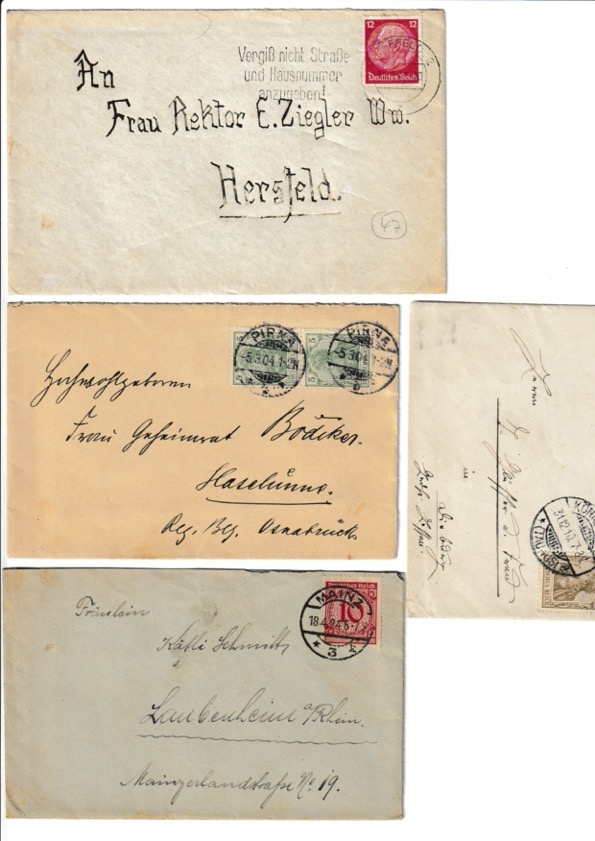 12 12
Deutsches Reich
Vergiß nicht Straße
und Hausnummer
anzugeben!
An
Frau Rektor E. Ziegler Ww.
Hersfeld.
47
PIRNA
-5.3.04.1-2N
5 5
PIRNA
-5.3.04.1-2N
Hochwohlgeboren
Frau Geheimrat Bödiker.
Haselünne.
Reg. Bez. Osnabrück
Herrn
Dr.
in
31.12.
MAINZ
18.4.24.6-7
* 3
10
Fräulein
Käthi Schmitt
Laubenheim a/Rhein.
Mainzerlandstraße No 19.